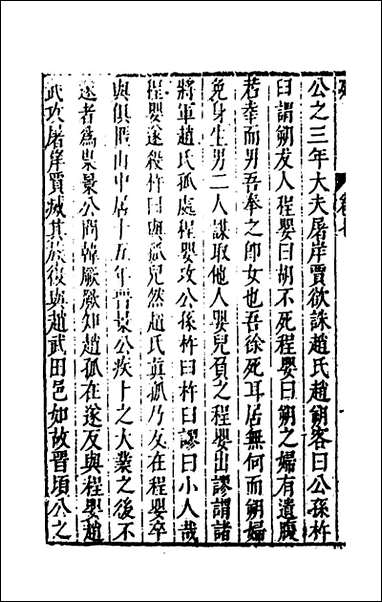 公之三年大夫屠岸賈欲誅趙氏趙朔客曰公孫杵
曰謂朔友人程嬰曰胡不死程嬰曰朔之婦有遺腹
若幸而男吾奉之即女也吾徐死耳居無何而朔婦
免身生男二人謀取他人嬰兒負之程嬰出謬謂諸
將軍趙氏孤處程嬰攻公孫杵曰杵曰謬曰小人哉
程嬰遂殺杵曰與孤兒然趙氏真孤乃友在程嬰卒
與俱匿山中居十五年晉景公疾卜之大業之後不
遂者為祟景公問韓厥厥知趙孤在遂友與程嬰趙
武攻屠岸賈滅其族復與趙武田邑如故晉頃公之